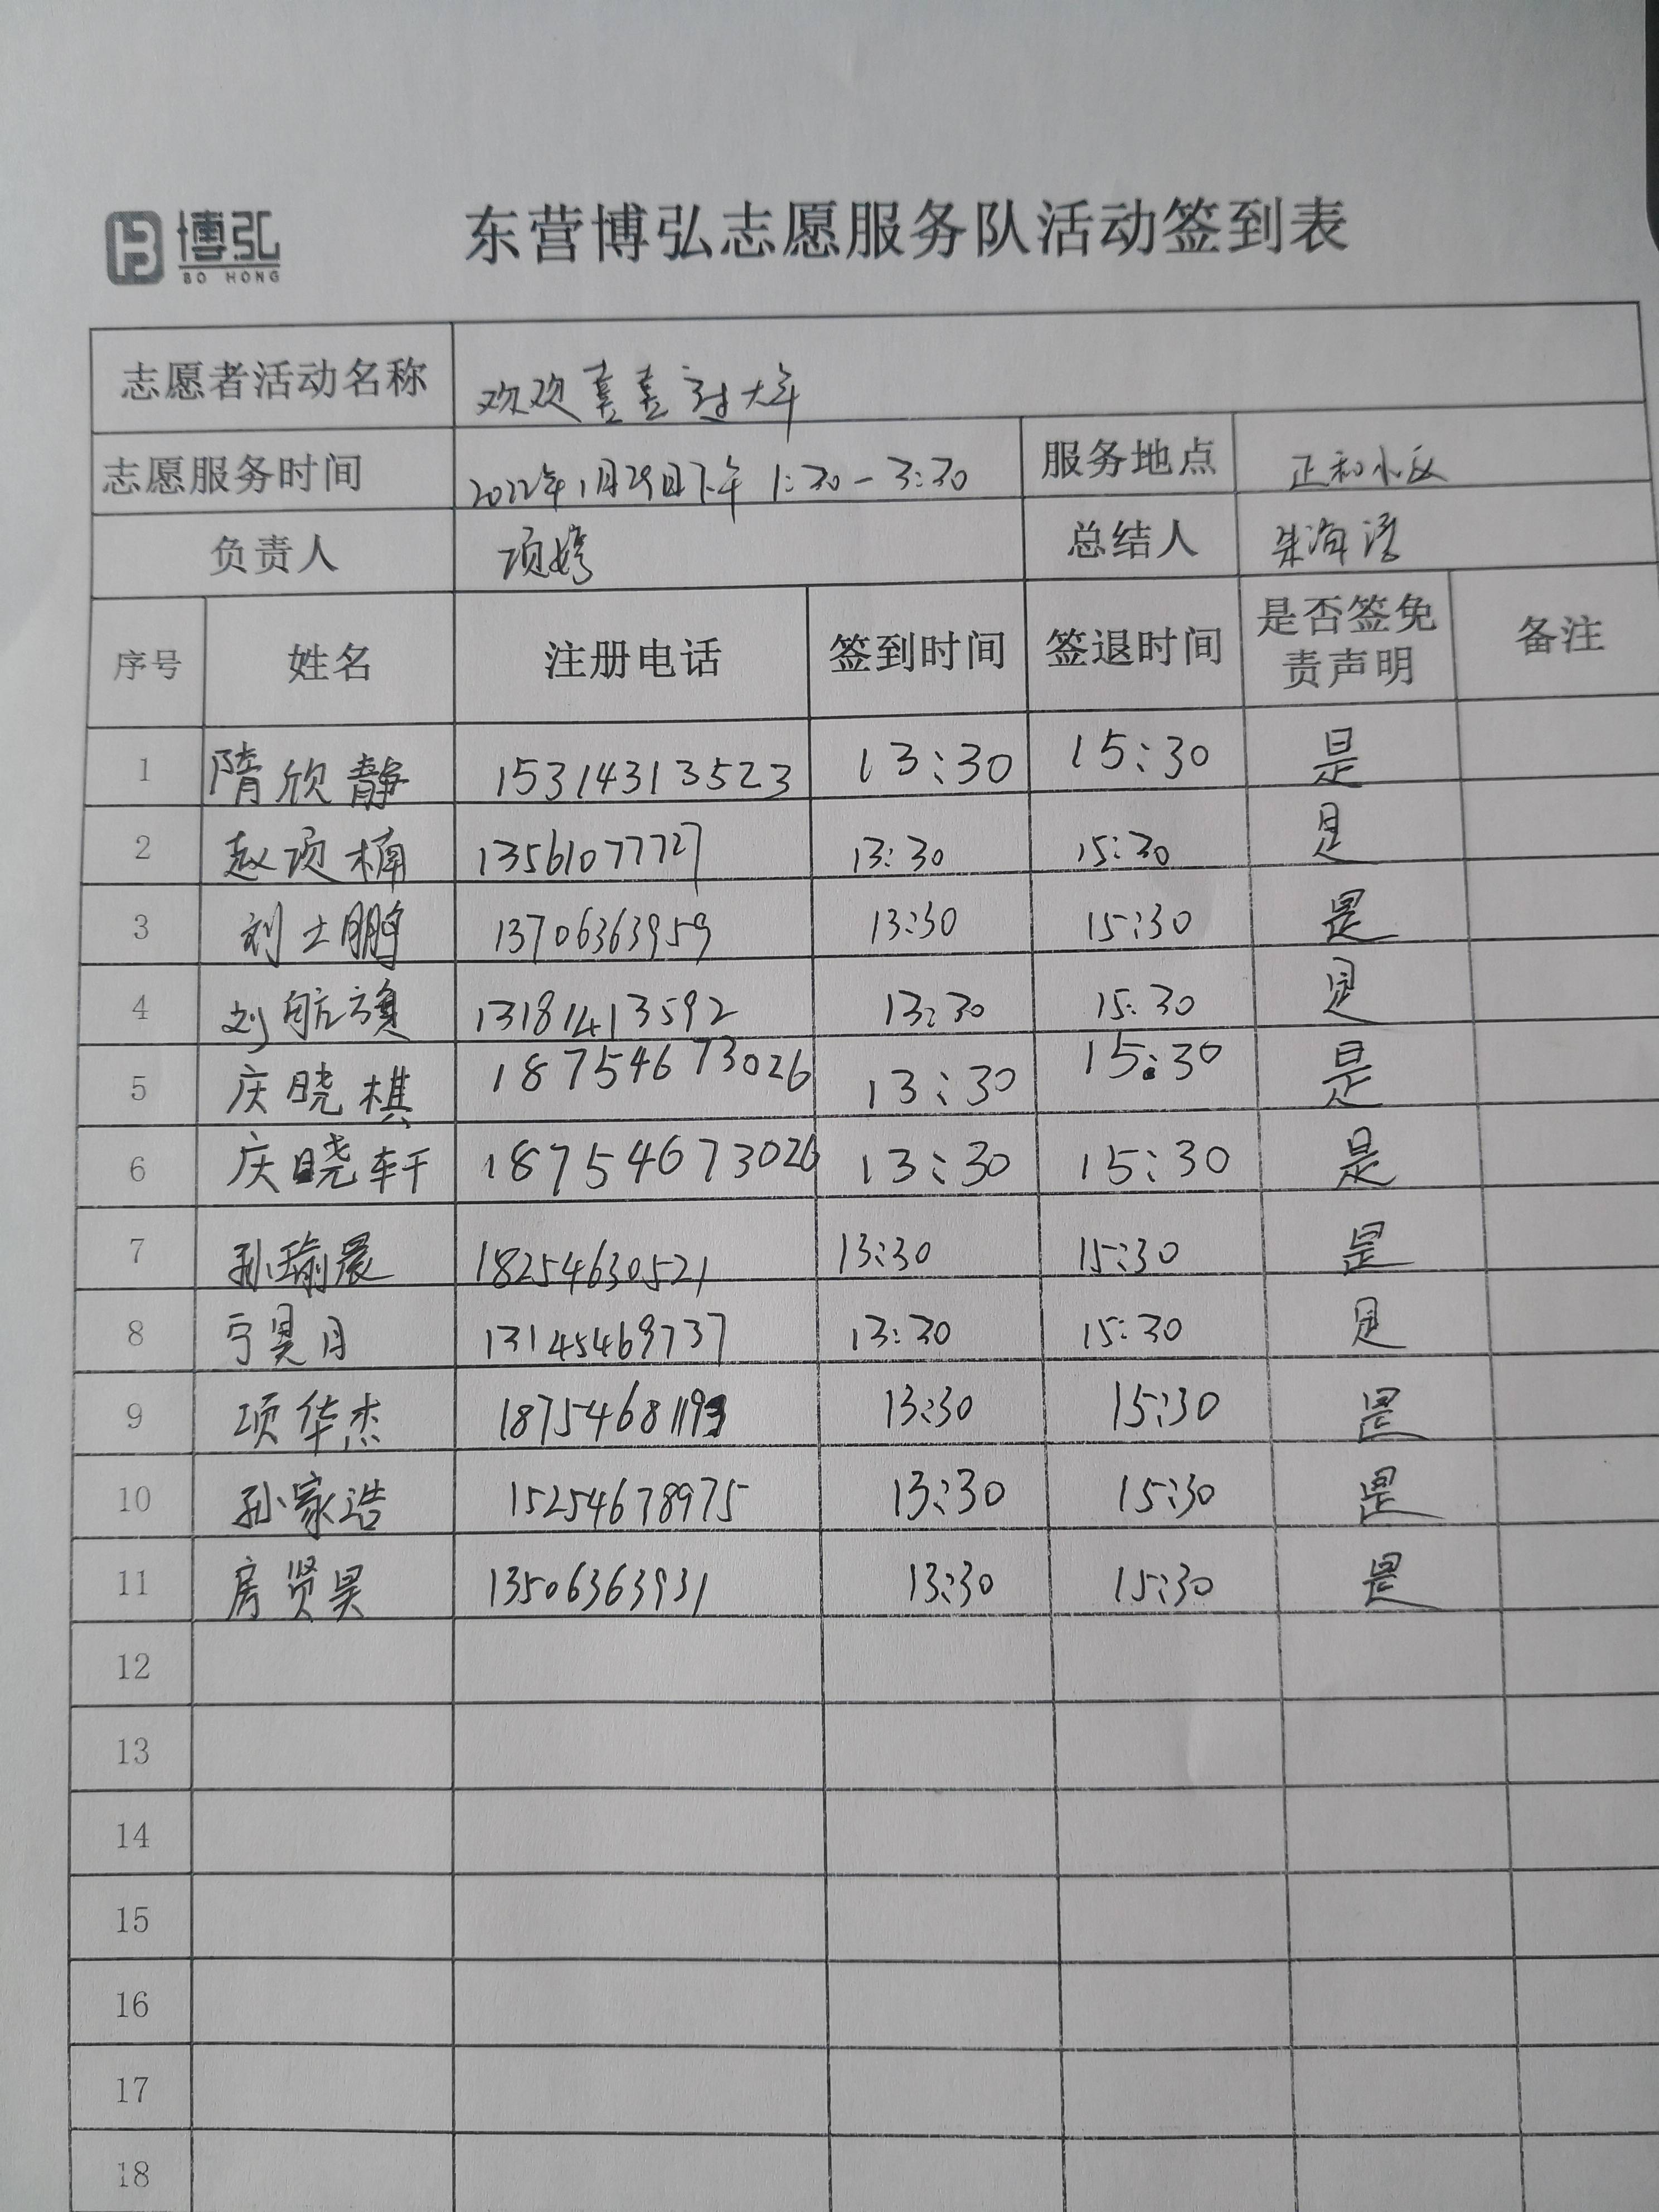 博弘
BO HONG
东营博弘志愿服务队活动签到表
志愿者活动名称 欢欢喜喜过大年
志愿服务时间 2022年1月29日下午 1:30-3:30 服务地点 正和小区
负责人 项婷 总结人 朱海涛
序号 姓名 注册电话 签到时间 签退时间 是否签免责声明 备注
1 隋欣静 15314313523 13:30 15:30 是
2 赵项楠 13561077727 13:30 15:30 是
3 刘士鹏 13706363959 13:30 15:30 是
4 刘航旗 13181413592 13:30 15:30 是
5 庆晓棋 18754673026 13:30 15:30 是
6 庆晓轩 18754673026 13:30 15:30 是
7 孙瑜晨 18254630521 13:30 15:30 是
8 宁昊月 13145469737 13:30 15:30 是
9 项华杰 18754681193 13:30 15:30 是
10 孙家浩 15254678975 13:30 15:30 是
11 房贤昊 13506363931 13:30 15:30 是
12
13
14
15
16
17
18